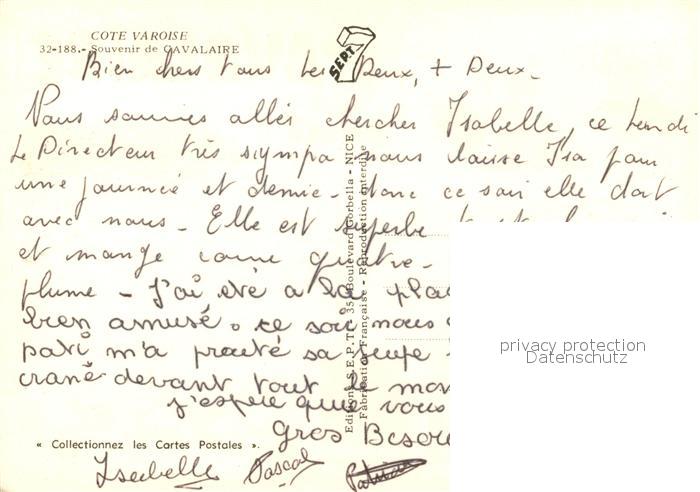 COTE VAROISE
32-188.- Souvenir de CAVALAIRE
SEPT
Bien chers tous les Deux, + Deux.
Nous sommes allés chercher Isabelle, ce Lundi
Le Directeur très sympa nous laisse Isa pour
une journée et demie - donc ce soir elle dort
avec nous - Elle est superbe
et mange comme quatre -
plume - J'ai été a la
bien amusé. ce soir nous
pati m'a prêté sa
crané devant tout le
j'espère que vous
Gros
Isabelle Pascal
« Collectionnez les Cartes Postales ».
Editions S.E.P.T. - 35, Boulevard Gorbella - NICE
Fabrication Française - Reproduction interdite
privacy protection
Datenschutz